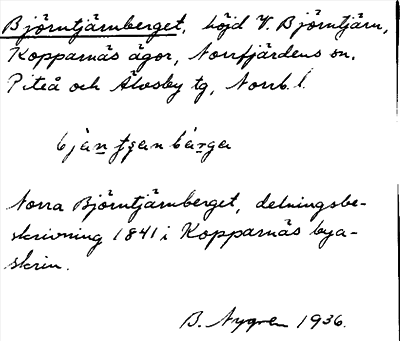 Björntjärnberget, höjd V. Björntjärn,
Kopparnäs ägor, Norrfjärdens sn.
Piteå och Älvsby tg, Norrb. l.
bjän tjan bärga
Norra Björntjärnberget, delningsbe-
skrivning 1841 i Kopparnäs bya-
skrin.
B. Nygren 1936.